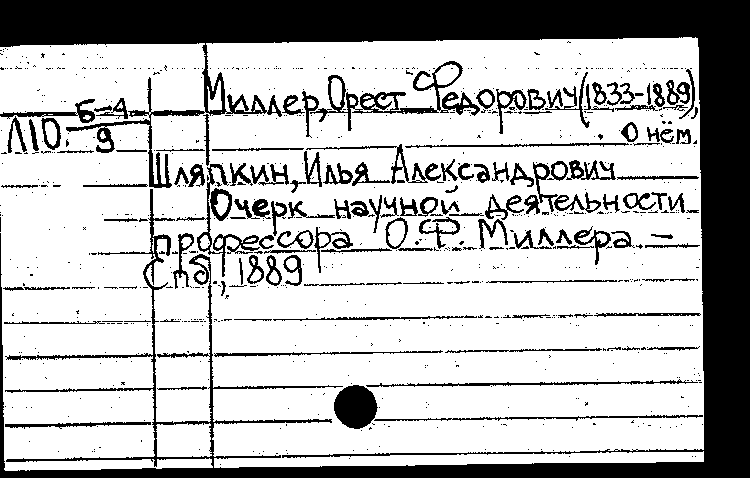 Миллер, Орест Федорович (1833-1889),
Л10. Б-4/9
О нём.
Шляпкин, Илья Александрович
Очерк научной деятельности
профессора О.Ф. Миллера –
Спб., 1889